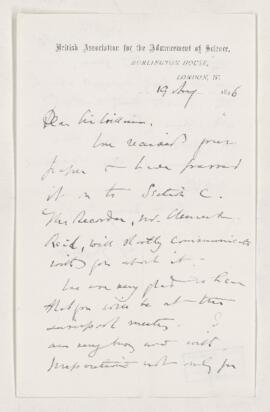 British Association for the Advancement of Science,
BURLINGTON HOUSE,
LONDON, W.
19 Aug 1896
Dear Sir William,
I have received your
paper & have passed
it on to Section C.
The Recorder, Mr. Clement
Reid, will shortly communicate
with you about it.
We are very glad to hear
that you will be at the
Liverpool meeting. I
am very busy now with
preparations not only for